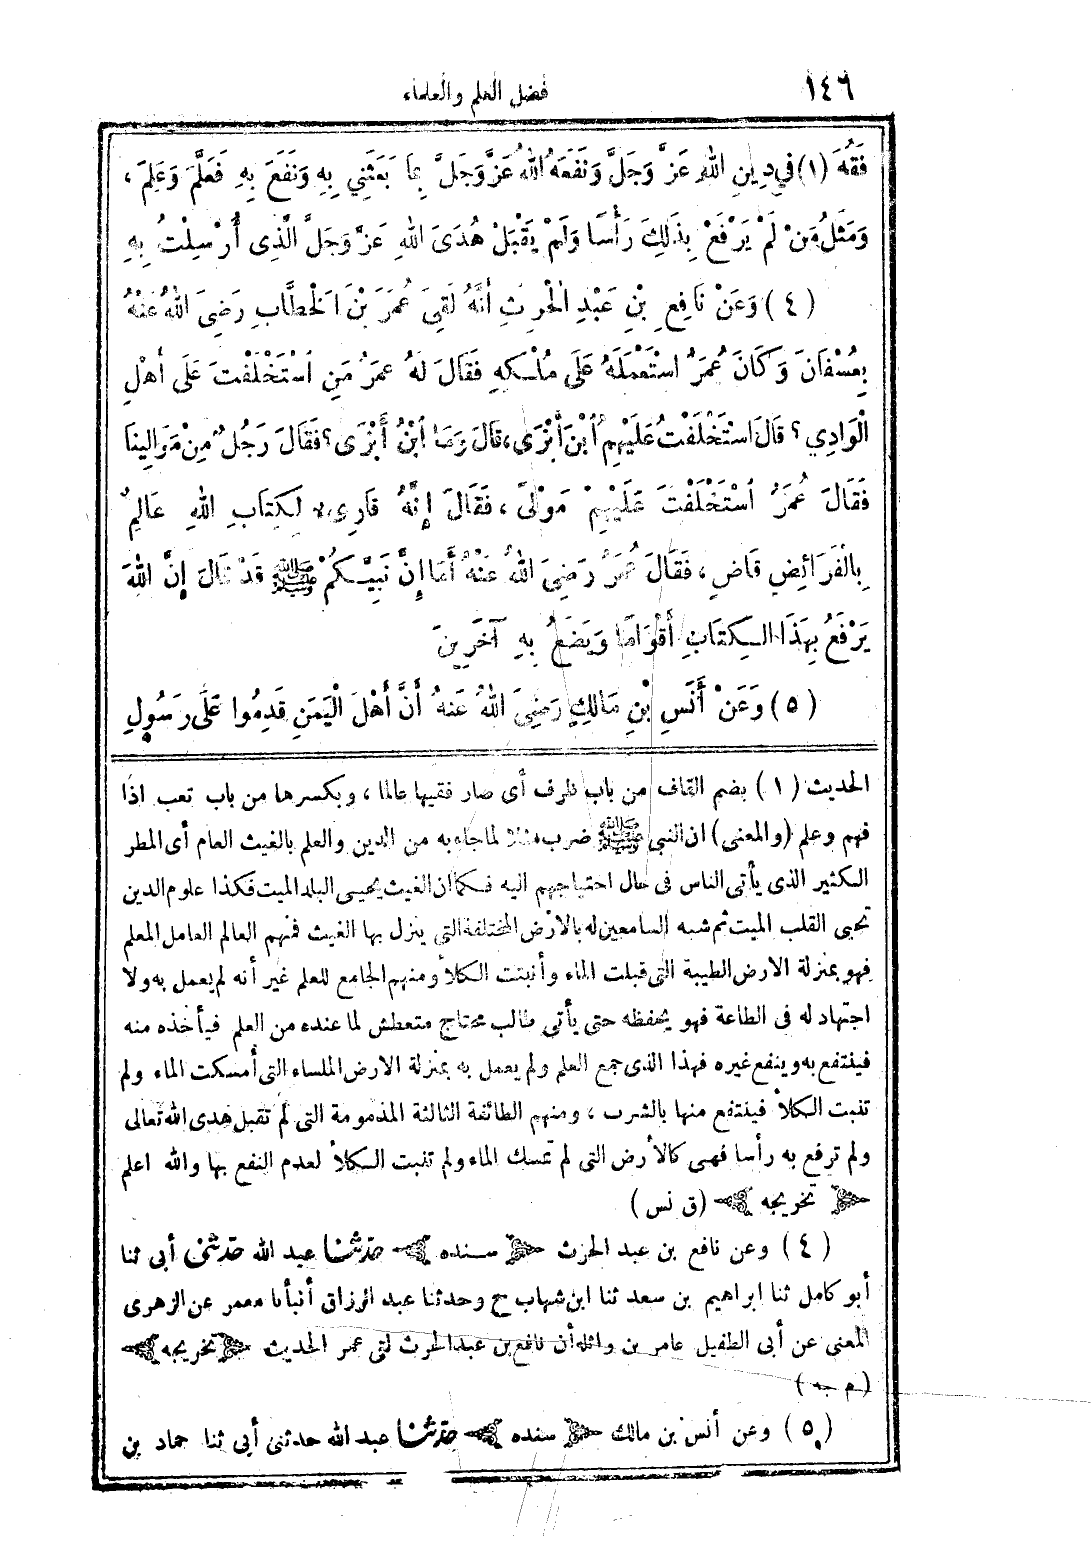 ١٤٦
فضل العلم والعلماء
فَقُهَ (١) فِي دِينِ اللهِ عَزَّ وَجَلَّ وَنَفَعَهُ اللهُ عَزَّ وَجَلَّ بِمَا بَعَثَنِي بِهِ وَنَفَعَ بِهِ فَعَلَّمَ وَعَلِمَ ،
وَمَثَلُ مَنْ لَمْ يَرْفَعْ بِذَلِكَ رَأْسًا وَلَمْ يَقْبَلْ هُدَى اللهِ عَزَّ وَجَلَّ الَّذِى أُرْسِلْتُ بِهِ
(٤) وَعَنْ نَافِعِ بْنِ عَبْدِ الْحٰرِثِ أَنَّهُ لَقِىَ عُمَرَ بْنَ الْخَطَّابِ رَضِىَ اللهُ عَنْهُ
بِعُسْفَانَ وَكَانَ عُمَرُ اسْتَعْمَلَهُ عَلَى مُلْكِهِ فَقَالَ لَهُ عُمَرُ مَنِ اسْتَخْلَفْتَ عَلَى أَهْلِ
الْوَادِي ؟ قَالَ اسْتَخْلَفْتُ عَلَيْهِمُ ابْنَ أَبْزَى ، قَالَ وَمَا ابْنُ أَبْزَى ؟ فَقَالَ رَجُلٌ مِنْ مَوَالِينَا
فَقَالَ عُمَرُ اسْتَخْلَفْتَ عَلَيْهِمْ مَوْلًى ، فَقَالَ إِنَّهُ قَارِىءٌ لِكِتَابِ اللهِ عَالِمٌ
بِالْفَرَائِضِ قَاضٍ ، فَقَالَ عُمَرُ رَضِىَ اللهُ عَنْهُ أَمَا إِنَّ نَبِيَّكُمْ ﷺ قَدْ قَالَ إِنَّ اللهَ
يَرْفَعُ بِهَذَا الْكِتَابِ أَقْوَامًا وَيَضَعُ بِهِ آخَرِينَ
(٥) وَعَنْ أَنَسِ بْنِ مَالِكٍ رَضِىَ اللهُ عَنْهُ أَنَّ أَهْلَ الْيَمَنِ قَدِمُوا عَلَى رَسُولِ
الحديث (١) بضم القاف من باب ظرف أى صار فقيها عالما ، وبكسرها من باب تعب اذا
فهم وعلم (والمعنى) ان النبي ﷺ ضرب مثلا لما جاء به من الدين والعلم بالغيث العام أى المطر
الكثير الذى يأتى الناس فى حال احتياجهم اليه فكما ان الغيث يحيى البلد الميت فكذا علوم الدين
تحيى القلب الميت ثم شبه السامعين له بالارض المختلفة التى ينزل بها الغيث فمنهم العالم العامل المعلم
فهو بمنزلة الارض الطيبة التى قبلت الماء وأنبتت الكلأ ومنهم الجامع للعلم غير أنه لم يعمل به ولا
اجتهاد له فى الطاعة فهو يحفظه حتى يأتى طالب محتاج متعطش لما عنده من العلم فيأخذه منه
فينتفع به وينفع غيره فهذا الذى جمع العلم ولم يعمل به بمنزلة الارض الملساء التى أمسكت الماء ولم
تنبت الكلأ فينتفع منها بالشرب ، ومنهم الطائفة الثالثة المذمومة التى لم تقبل هدى الله تعالى
ولم ترفع به رأسا فهى كالأرض التى لم تمسك الماء ولم تنبت الكلأ لعدم النفع بها والله اعلم
تخريجه (ق نس)
(٤) وعن نافع بن عبد الحٰرث سنده حدثنا عبد الله حدثنى أبى ثنا
أبو كامل ثنا ابراهيم بن سعد ثنا ابن شهاب ح وحدثنا عبد الرزاق أنبأنا معمر عن الزهرى
المعنى عن أبى الطفيل عامر بن واثلة أن نافع بن عبد الحٰرث لقى عمر الحديث تخريجه
(م جه)
(٥) وعن أنس بن مالك سنده حدثنا عبد الله حدثنى أبى ثنا حماد بن